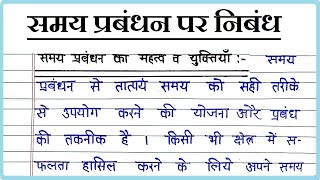 समय प्रबंधन पर निबंध
समय प्रबंधन का महत्व व युक्तियाँ :- समय
प्रबंधन से तात्पर्य समय को सही तरीके
से उपयोग करने की योजना और प्रबंध
की तकनीक है । किसी भी क्षेत्र में स-
फलता हासिल करने के लिये अपने समय